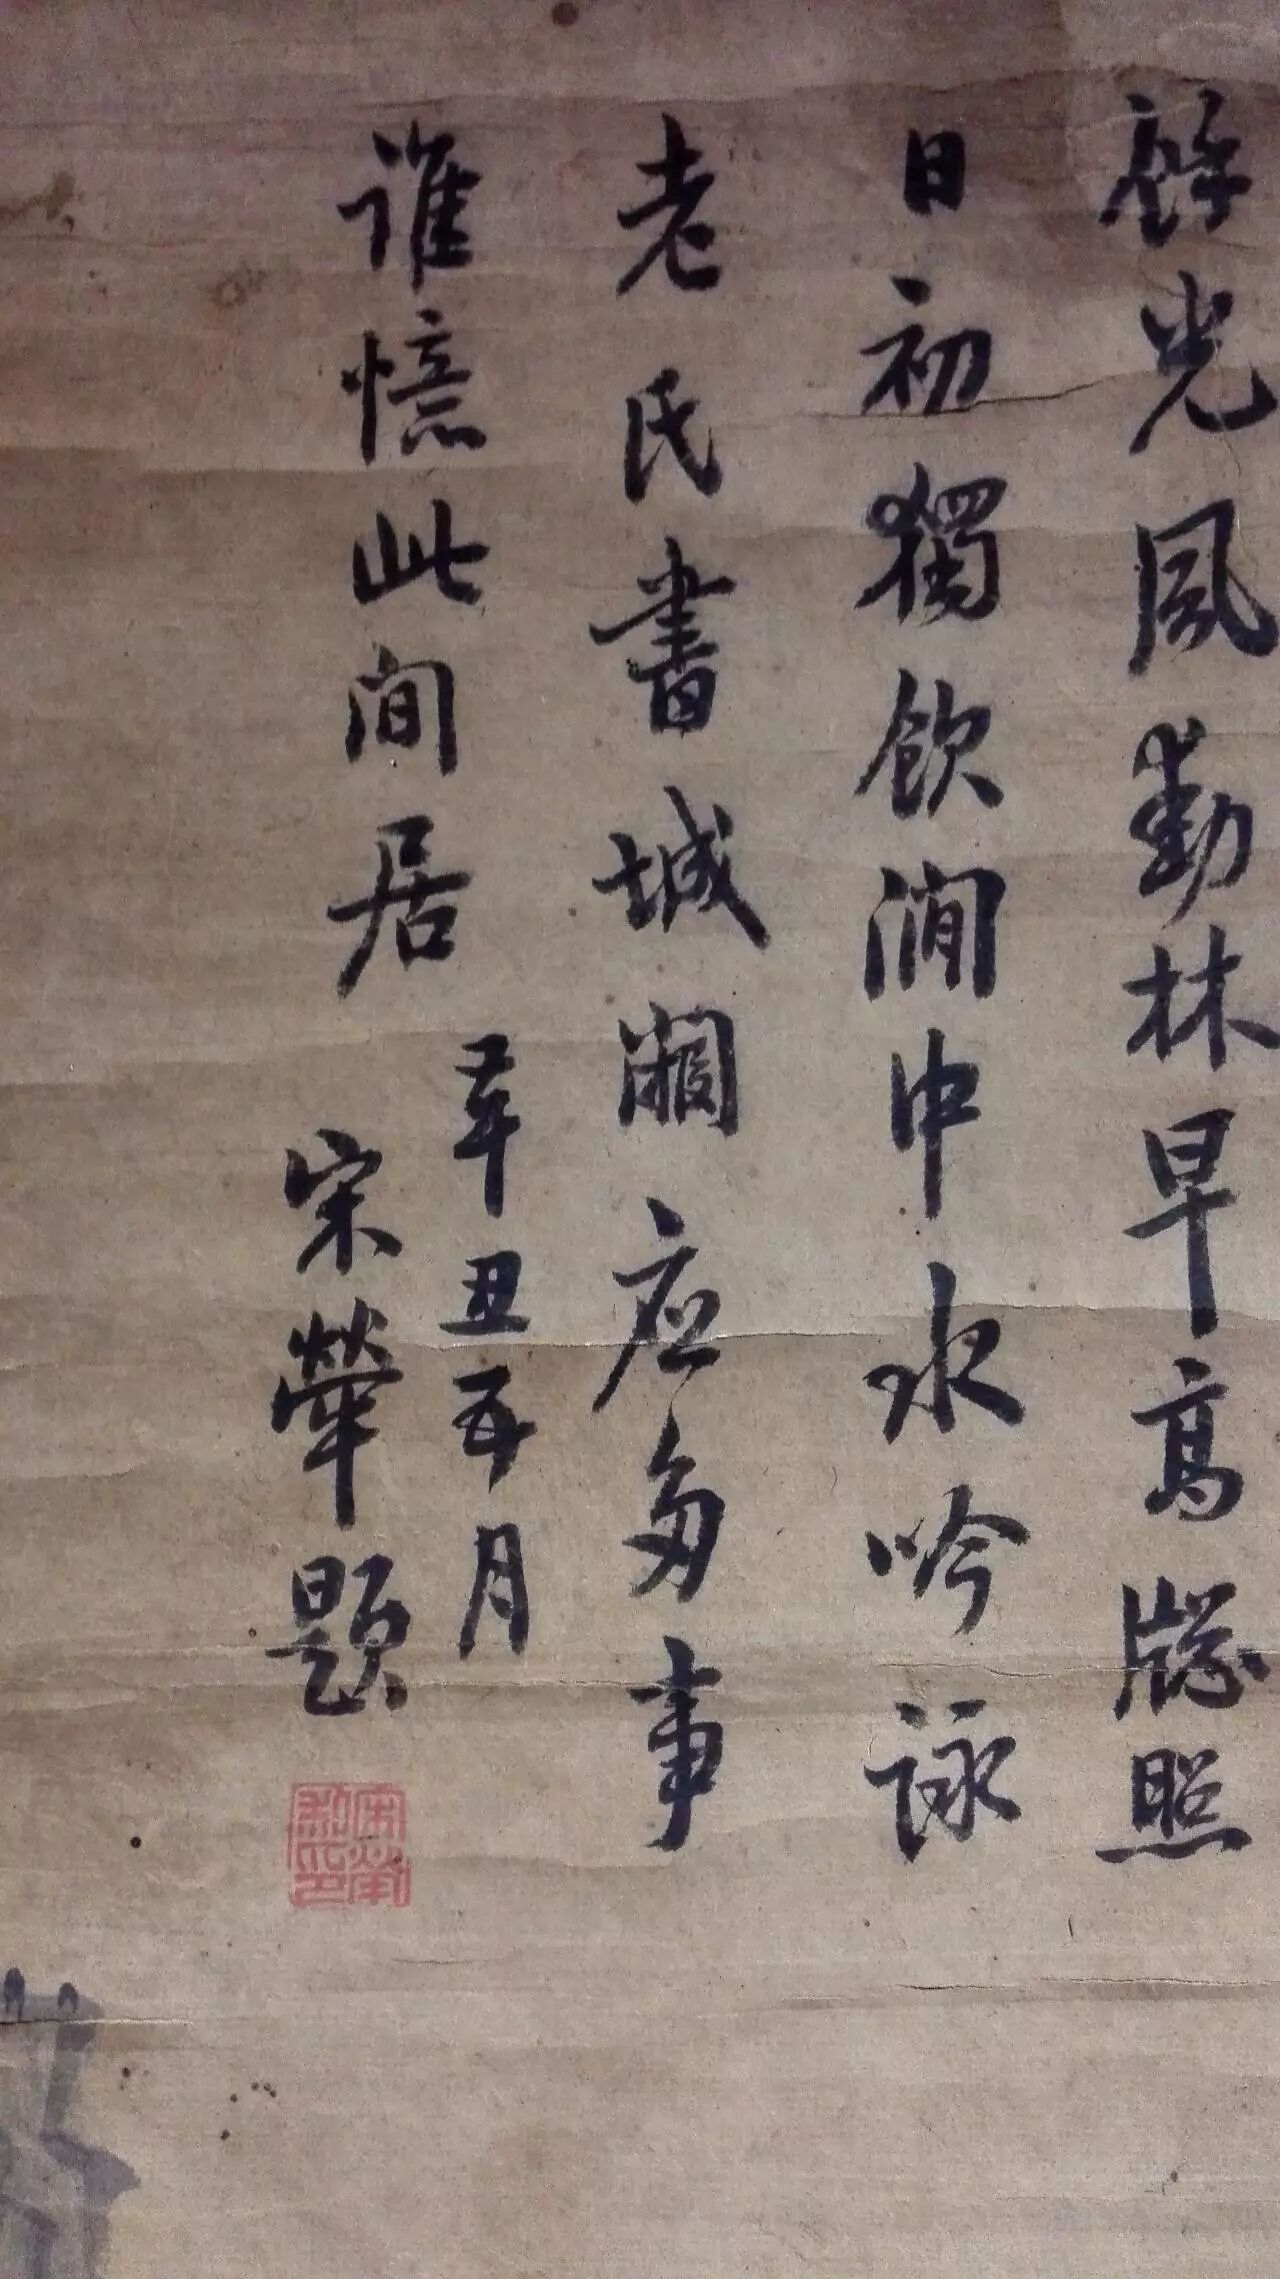 光風動林早高牕照
日初獨飲澗中水吟詠
老氏書城闕应多事
誰憶此間居
辛丑五月
宋犖題
宋犖私印